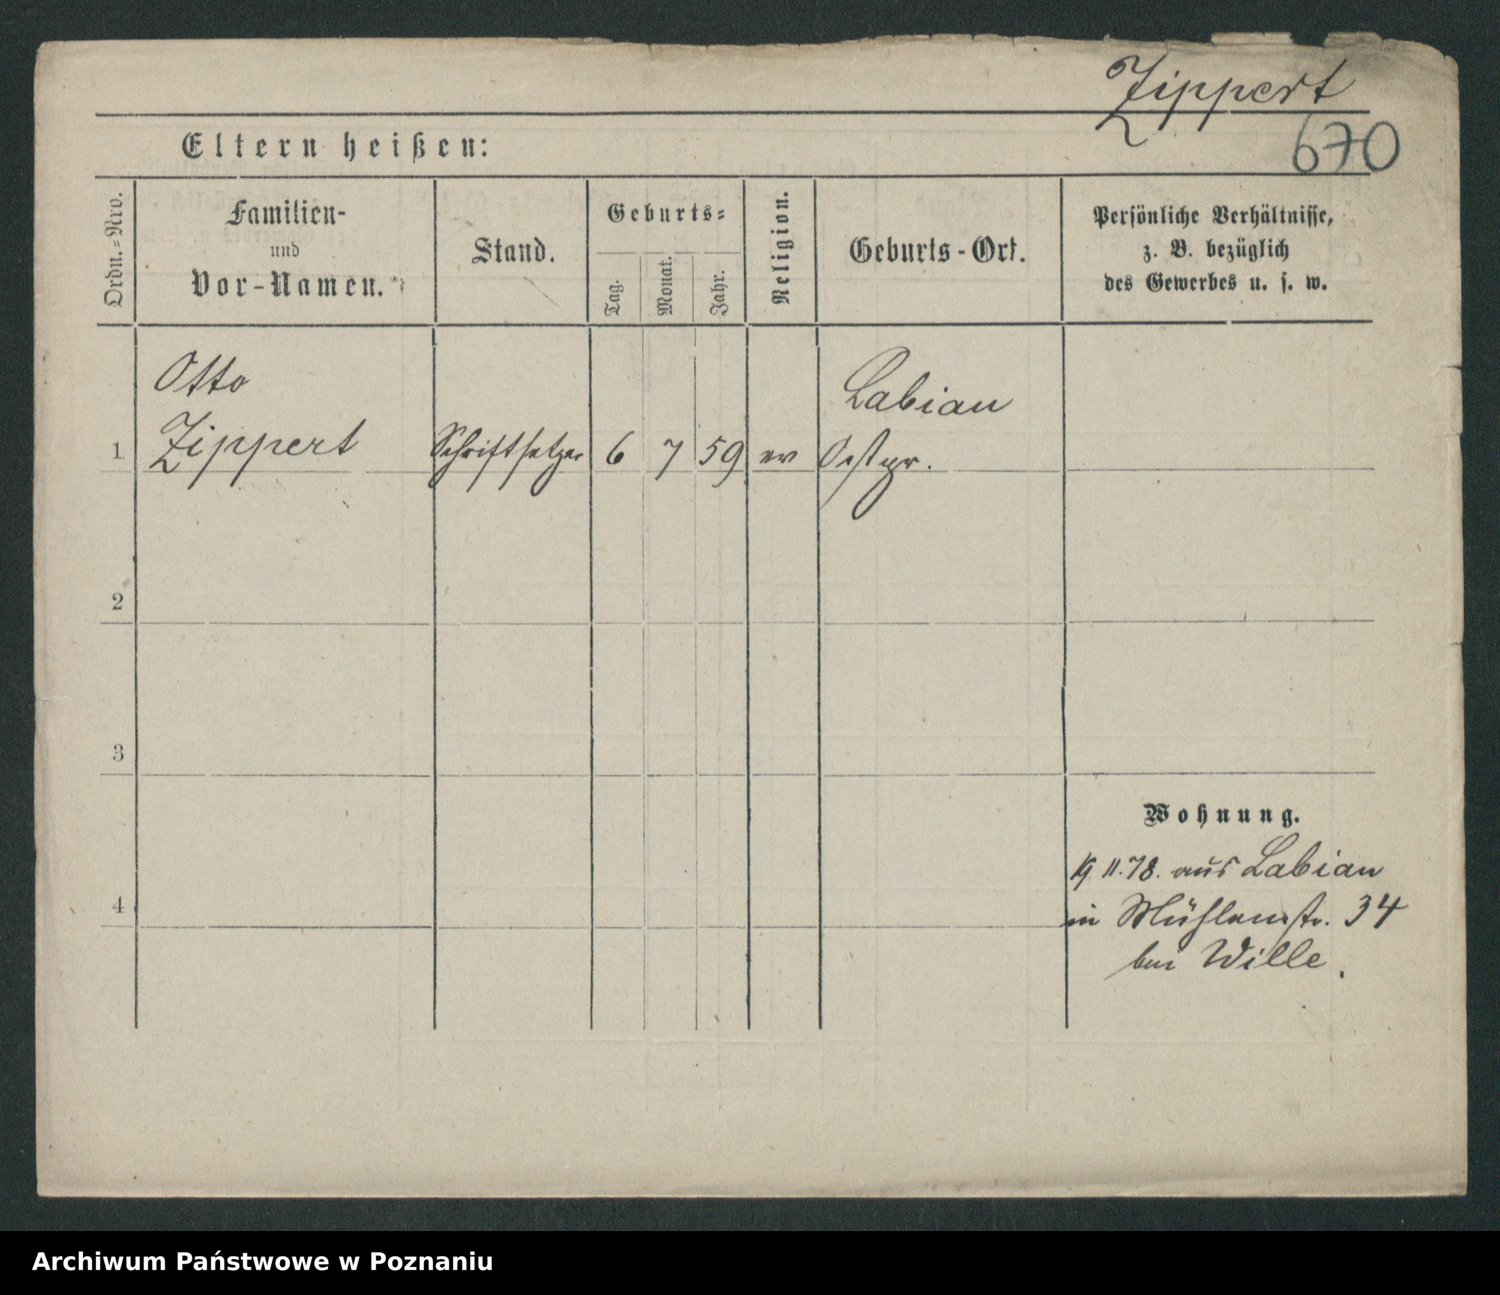 Zippert
670
Eltern heißen:
Ordn.=Nro.
Familien-
und
Vor-Namen.
Stand.
Geburts=
Tag.
Monat.
Jahr.
Religion.
Geburts-Ort.
Persönliche Verhältnisse,
z. B. bezüglich
des Gewerbes u. s. w.
Otto
Labiau
1 Zippert Schriftsetzer 6 7 59 ev Ostpr.
2
3
4
Wohnung.
19 11.78. aus Labiau
in Mühlenstr. 34
bei Wille.
Archiwum Państwowe w Poznaniu